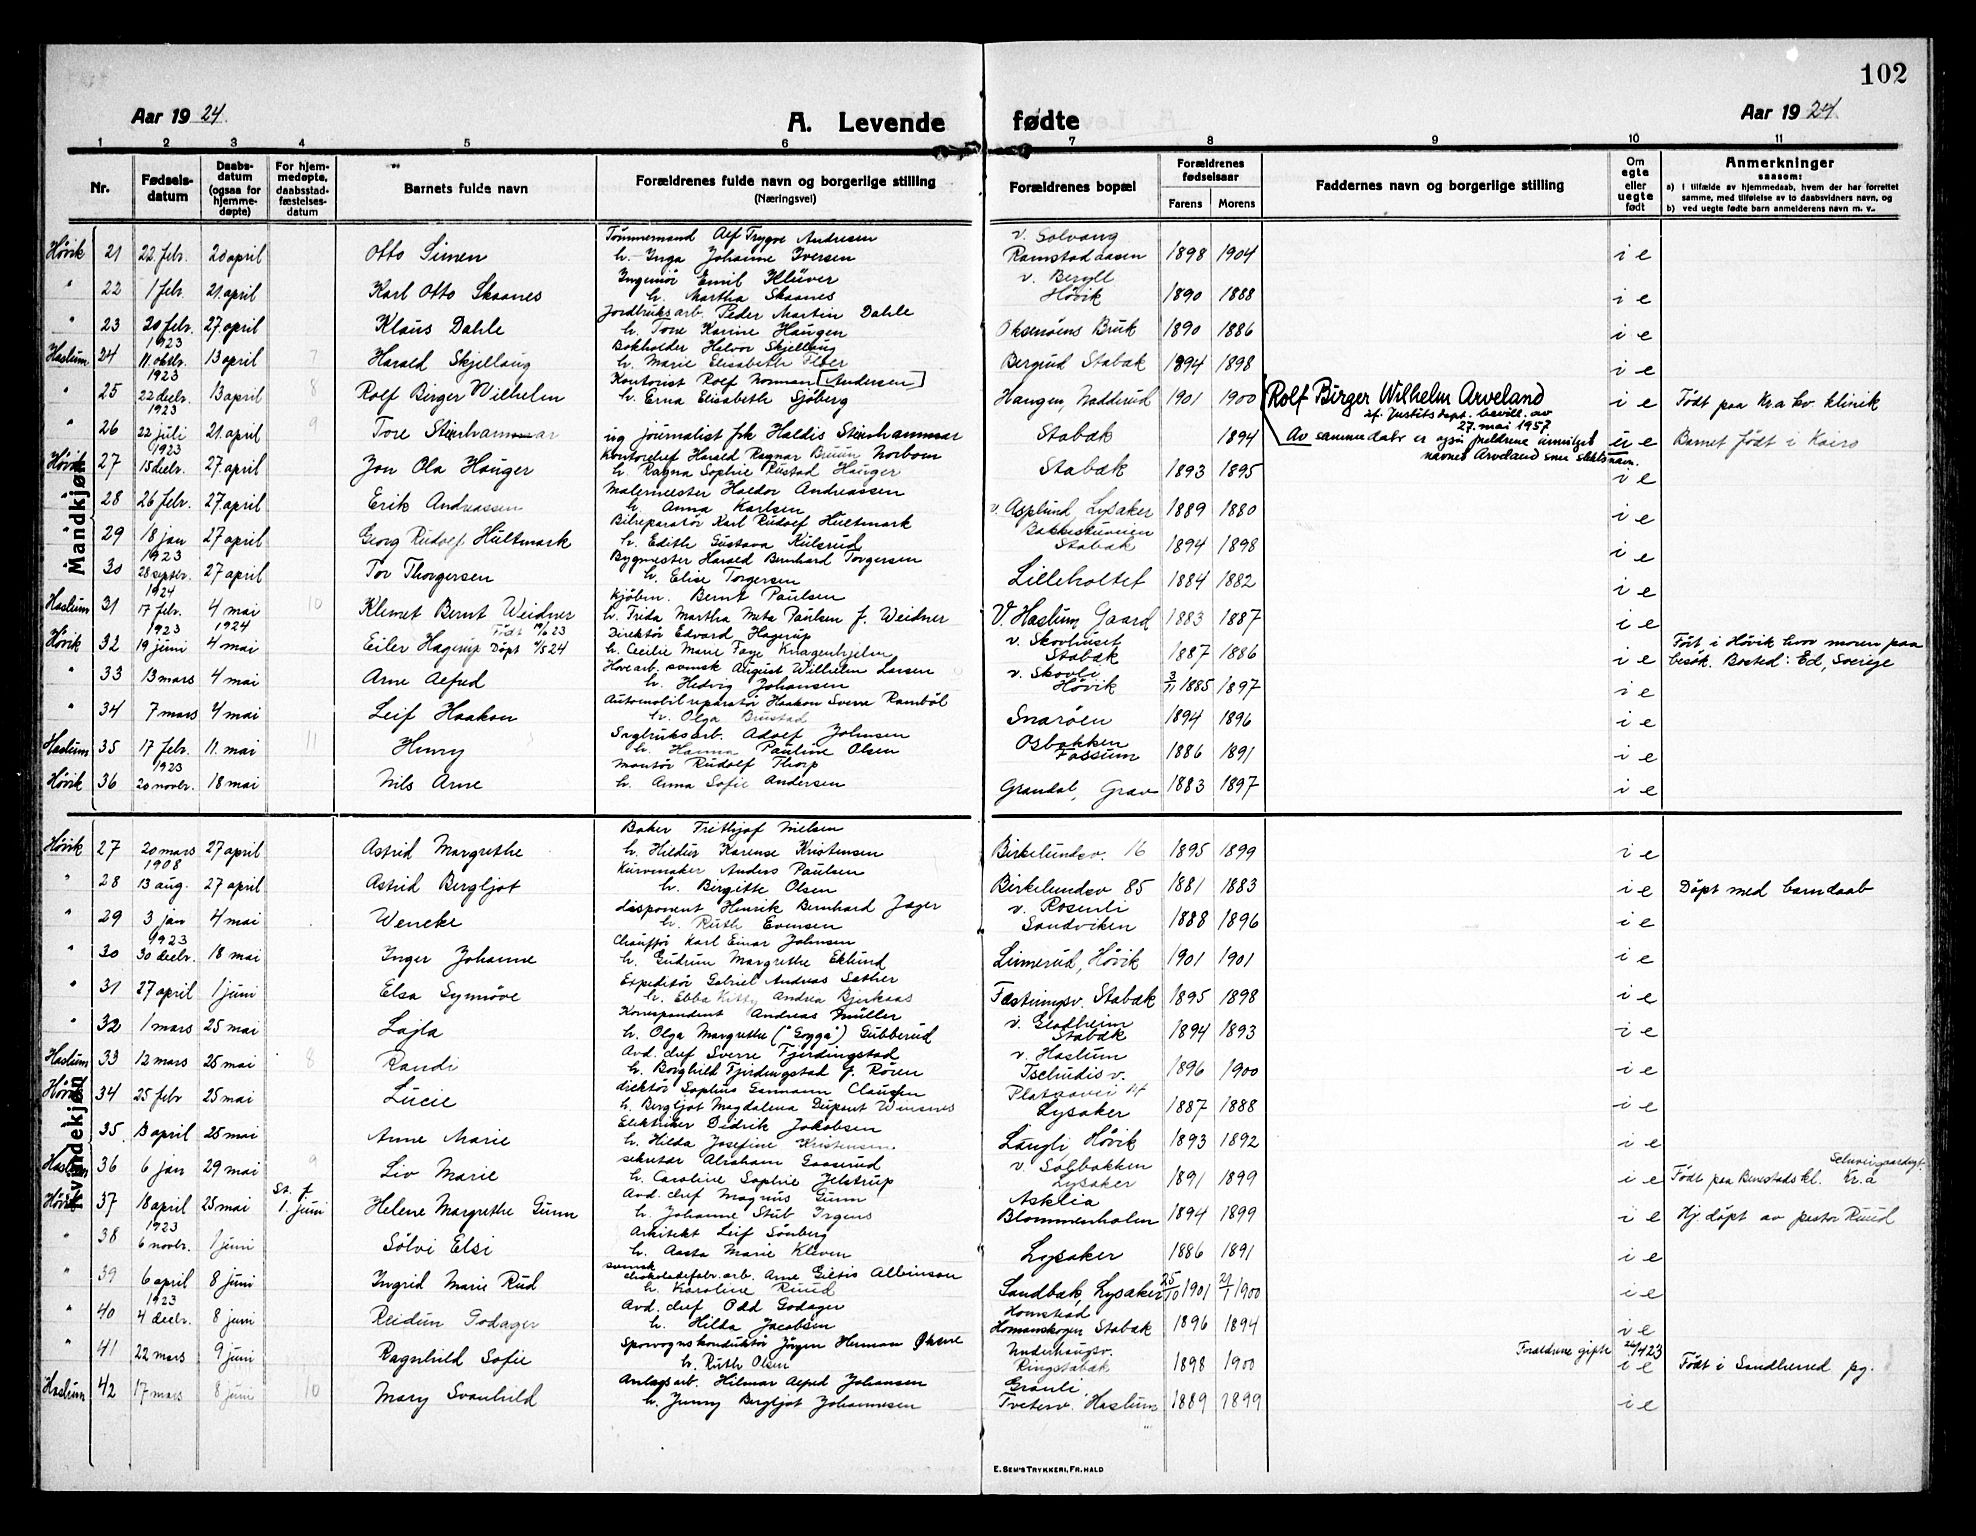 102
Aar 1924.
A. Levende fødte
Aar 1924
1 2 3 4 5 6 7 8 9 10 11
Nr.
Fødselsdatum
Daabsdatum (ogsaa for hjemmedøpte)
For hjemmedøpte, daabsstadfæstelsesdatum
Barnets fulde navn
Forældrenes fulde navn og borgerlige stilling (Næringsvei)
Forældrenes bopæl
Forældrenes fødselsaar
Farens Morens
Faddernes navn og borgerlige stilling
Om egte eller uegte født
Anmerkninger
saasom:
a) i tilfælde av hjemmedaab, hvem der har forrettet samme, med tilføielse av to daabsvidners navn, og
b) ved uegte fødte barn anmelderens navn m. v..
Mandkjøn
Høvik 21 22. febr. 20 april Otto Simen Tømmermand Alf Trygve Andresen
h. Inga Johanne Iversen v. Solvang Ramstadaasen 1898 1904 i e
" 22 1 febr. 21. april Karl Otto Skaanes Ingeniør Emil Klüver
h. Martha Skaanes v. Beryll Høvik 1890 1888 i e
" 23 20 febr. 27. april Klaus Dahle Jordbruksarb. Peder Martin Dahle
h. Tore Karine Haugen Oksenøens Bruk 1890 1886 i e
Haslum 24 1923 11. oktbr. 13 april 7 Harald Skjellaug Bokholder Halvor Skjellaug
h. Marie Elisabeth Floer Bergsud Stabæk 1894 1898 i e
" 25 1923 22 decbr. 13 april 8 Rolf Birger Wilhelm Kontorist Rolf Norman [Andersen]
h. Erna Elisabeth Sjöberg Haugen, Nadderud 1901 1900 Rolf Birger Wilhelm Arveland
if. Justitsdept. bevill. av 27. mai 1957.
Av samme dato er også foreldrene innvilget navnet Arveland som slektsnavn.
i e Født paa Kr.a kv. klinik
" 26 1923 22 juli 21. april 9 Tore Steinhammar ug. journalist frk Haldis Steinhammar Stabæk 1894 u e Barnet født i Kairo
Høvik 27 1923 15 decbr. 27. april Jon Ola Hauger Kontorchef Harald Ragnar Bruun Norbom
h. Ragna Sophie Rustad Hauger Stabæk 1893 1895 i e
" 28 26 febr. 27 april Erik Andreassen Malermester Haldor Andreassen
h. Anna Karlsen v. Asplund, Lysaker 1889 1880 i e
" 29 18 jan 27 april Georg Rudolf Hultmark Bilreparatør Karl Rudolf Hultmark
h. Edith Gustava Kulsrud Bakkestuveien Stabæk 1894 1898 i e
" 30 1923 28 septbr. 27 april Tor Thorgersen Bygmester Harald Bernhard Torgersen
h. Elise Torgersen Lilleholtet 1884 1882 i e
Haslum 31 1924 17 febr. 4 mai 10 Klemet Bernt Weidner Kjøbm. Bernt Paulsen
h. Frida Martha Meta Paulsen f. Weidner V. Haslum Gaard 1883 1887 i e
Høvik 32 1923 19 juni 1924 4 mai Eiler Hagerup Født 19/6 23 Døpt 4/5 24 Direktør Edvard Hagerup
h. Cecilie Marie Faye Knagenhjelm v. Skovhuset Stabæk 1887 1886 i e Født i Høvik hvor moren paa besøk. Bosted: Ed, Sverige
" 33 13 mars 4 mai Arne Alfred Hovearb. svensk August Wilhelm Larsen
h. Hedvig Johansen v. Skovli Høvik 3/11 1885 1897 i e
" 34 7 mars 4 mai Leif Haakon Automobilreparatør Haakon Sverre Rambøl
h. Olga Brustad Snarøen 1894 1896 i e
Haslum 35 17 febr. 11. mai 11 Henry Sagbruksarb. Adolf Johnsen
h. Hanna Pauline Olsen Osbakken Fossum 1886 1891 i e
Høvik 36 1923 20 novbr. 18 mai Nils Arne Montør Rudolf Thorp
h. Anna Sofie Andersen Grandal, Grav 1883 1897 i e
Kvindekjøn
Høvik 27 20 mars 27 april Astrid Margrethe Baker Frithjof Nielsen
h. Hildur Karense Kristensen Birkelundsv. 16 1895 1899 i e
" 28 1908 13 aug. 27 april Astrid Bergljot Kurvmaker Anders Paulsen
h. Birgitte Olsen Birkelundsv 85 1881 1883 i e Døpt med barnedaab
" 29 3 jan 4 mai Wencke disponent Henrik Bernhard Jager
h. Ruth Evensen v. Rosenli Sandviken 1888 1896 i e
" 30 1923 30 decbr. 18 mai Inger Johanne Chauffør Karl Einar Johnsen
h. Gudrun Margrethe Eklund Linnerud, Høvik 1901 1901 i e
" 31 27 april 1 juni Elsa Synnøve Expeditør Gabriel Andreas Sæther
h. Ebba Kitty Andrea Bjerkaas Fæstningsv. Stabæk 1895 1898 i e
" 32 1 mars 25 mai Lajla Korrespondent Andreas Müller
h. Olga Margrethe ("Gygga") Gubberud v. Gladheim Stabæk 1894 1893 i e
Haslum 33 12 mars 25 mai 8 Randi Avd. chef Sverre Fjerdingstad
h. Borghild Fjerdingstad f. Røren v. Haslum Tschudis v. 1896 1900 i e
Høvik 34 25 febr 25 mai Lucie direktør Sophus Gormann Clausen
h. Bergljot Magdalena Dupont Winsnes Platåvei 14 Lysaker 1887 1888 i e
35 13 april 25 mai Anne Marie Elektriker Didrik Jakobsen
h. Hilda Josefine Kristensen Langli, Høvik 1893 1892 i e
Haslum 36 6 jan 29 mai 9 Liv Marie sekretær Abraham Gaasrud
h. Caroline Sophie Jelstrup v. Solbakken Lysaker 1891 1899 i e Født paa Benestads kl. Schweigaardsgt. Kr.a
Høvik 37 18 april 25 mai St. f. 1. juni Helene Margrethe Gunn Avd. chef Magnus Gunn
h. Johanne Stub Irgens Asklia Blommenholm 1894 1899 i e Hj. døpt av pastor Ruud
" 38 1923 6 novbr. 1 juni Sølvi Elsi Arkitekt Leif Sønberg
h. Aasta Marie Kleven Lysaker 1886 1891 i e
" 39 6 april 8 juni Ingrid Marie Rud svensk chokoladefabr.arb. Arne Gillis Albinson
h. Karoline Ruud Sandbæk, Lysaker 25/10 1901 21/1 1900 i e
" 40 1923 4 decbr. 8 juni Reidun Godager Avd. chef Odd Godager
h. Hilda Jacobsen Homstad Homanskogen Stabæk 1896 1894 i e
" 41 22 mars 9 juni Ragnhild Sofie Sporvognskonduktør Jörgen Herman Økern
h. Ruth Olsen Underhaugsv. Ringstabæk 1898 1900 Foreldrene gifte 26/1 423 i e Født i Sandherred pg.
Haslum 42 17 mars 8 juni 10 Mary Svanhild Anlægsarb. Hilmar Alfred Johansen
h. Jenny Bergljot Johannesen Granli, Tvetersv. Haslum 1889 1899 i e
E. SEM'S TRYKKERI, FR.HALD